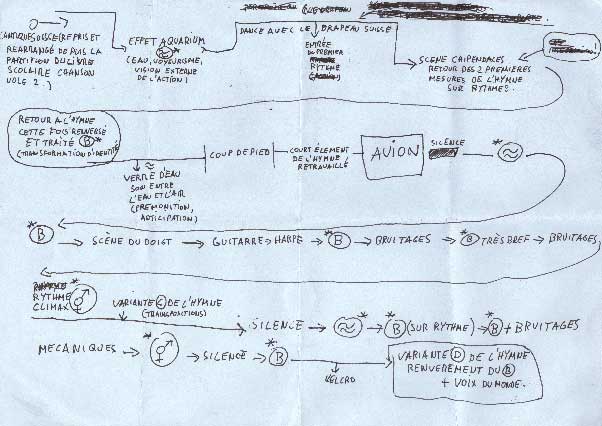 DANSE AVEC LE DRAPEAU SUISSE
CANTIQUE SUISSE (REPRIS ET
REARRANGÉ DEPUIS LA
PARTITION DU LIVRE
SCOLAIRE CHANSON
VOLE 2.)
EFFET AQUARIUM
(EAU, VOYEURISME,
VISION EXTERNE
DE L'ACTION)
ENTRÉE
DU PREMIER
RYTHME
SCÈNE CHIPENDALES
RETOUR DES 2 PREMIÈRES
MESURES DE L'HYMNE
SUR RYTHME 2
RETOUR A L'HYMNE
CETTE FOIS RENVERSÉ
ET TRAITÉ B*
(TRANSFORMATION D'IDENTITÉ)
VERRE D'EAU
SON ENTRE
L'EAU ET L'AIR
(PREMONITION,
ANTICIPATION)
COUP DE PIED
COURT ÉLEMENT
DE L'HYMNE
RETRAVAILLÉ
AVION
SILENCE
*B → SCÈNE DU DOIGT → GUITARRE → HARPE → *B → BRUITAGES → *B TRÈS BREF → BRUITAGES
RYTHME
CLIMAX
VARIANTE C DE L'HYMNE
(TRANSPOSITIONS)
SILENCE → ≈* → *B (SUR RYTHME) → *B + BRUITAGES
MECANIQUES → *⚥ → SILENCE → *B
VELCRO
VARIANTE D DE L'HYMNE
RENVERSEMENT DU B
+ VOIX DU MONDE.